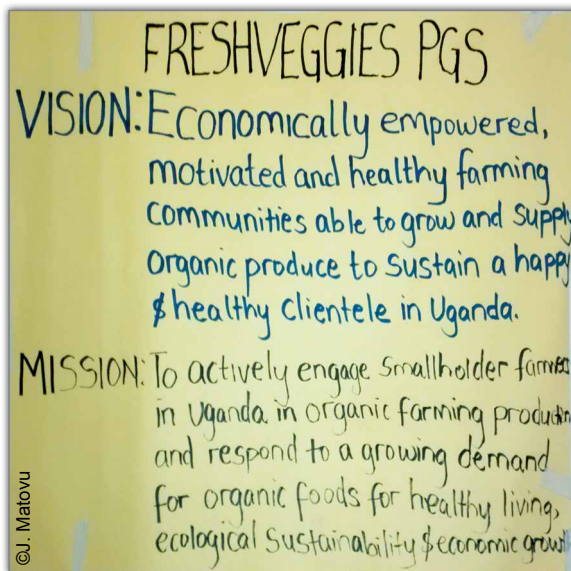 FRESHVEGGIES PGS
VISION: Economically empowered,
motivated and healthy farming
communities able to grow and supply
organic produce to sustain a happy
& healthy clientele in Uganda.
MISSION: To actively engage smallholder farmers
in Uganda in organic farming production
and respond to a growing demand
for organic foods for healthy living,
ecological sustainability & economic growth
©J. Matovu